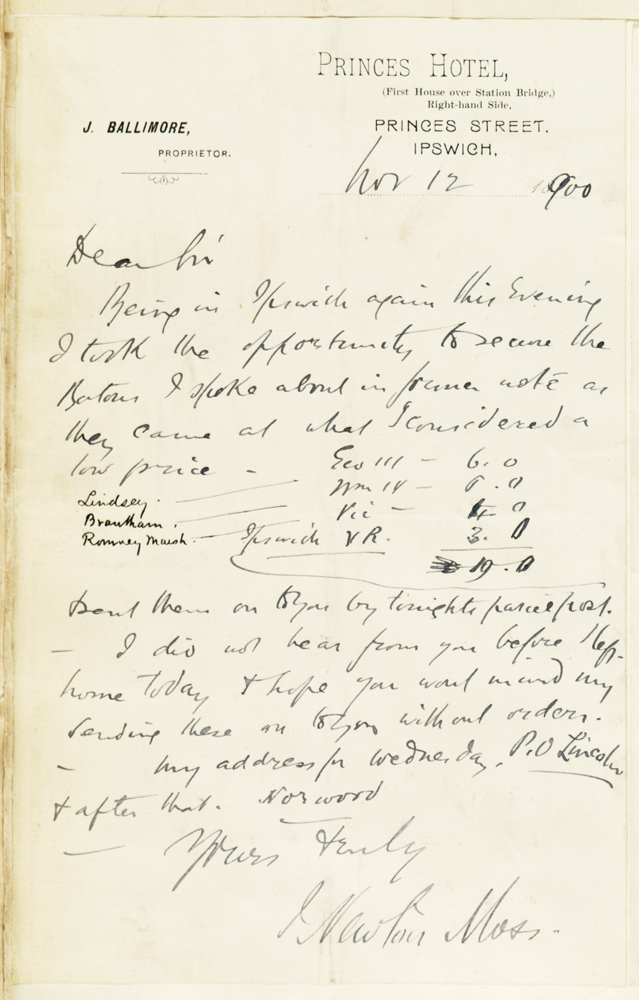 PRINCES HOTEL,
(First House over Station Bridge,)
Right-hand Side,
J. BALLIMORE,
PROPRIETOR.
PRINCES STREET.
IPSWICH,
Nov 12 1900
Dear Sir
Being in Ipswich again this Evening
I took the opportunity to secure the
Batons I spoke about in former note as
they came at what I considered a
low price - Geo III - 6. 0
Lindsey. Wm IV - 6. 0
Brantham. Vic - 4 0
Romney Marsh. - Ipswich VR. 3. 0
19. 0
& sent them on to you by tonights parcel post.
- I did not hear from you before I left
home today & hope you wont mind my
sending these on to you without orders.
- my address for Wednesday, P.O Lincoln
& after that. Norwood
- Yours truly
J Newton Moss.